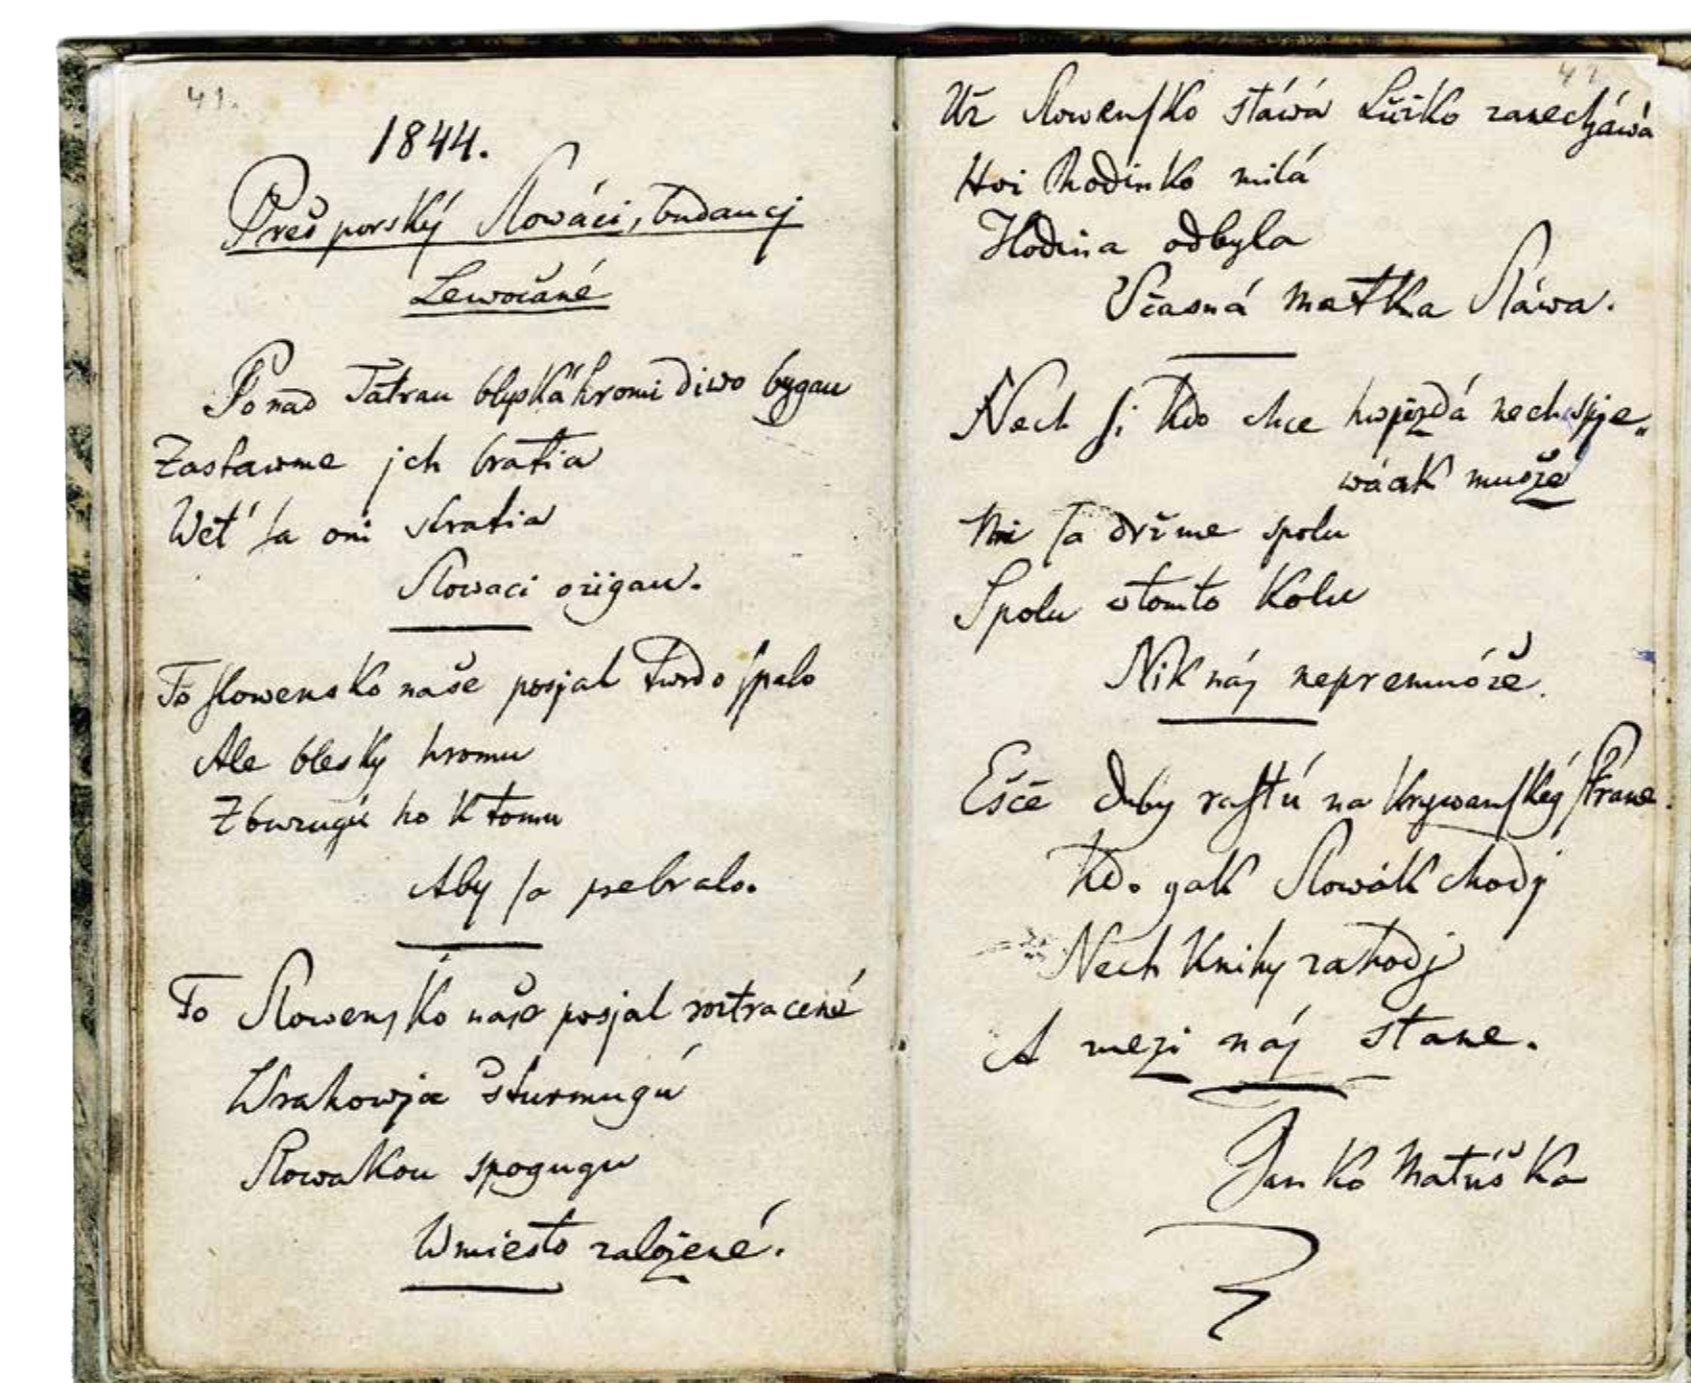 41.
1844.
Prešporský Slowáci, budaucj
Lewočané
Ponad Tatrau blyská hromi diwo bygau
Zastawme jch bratia
Weť sa oni stratia
Slowaci ožigau.
To slowensko naše posjal twrdo spalo
Ale blesky hromu
Zbuzugú ho k tomu
Aby sa prebralo.
To Slowensko naše posjal roztracené
Wrahowja šturmugú
Slowakou spogugu
Wmiesto založené.
42
Už Slowensko stáwá Lúžko zanecháwá
Hoi Rodinko milá
Hodina odbyla
Včasná matka Sláwa.
Nech si kdo chce hwjezdá nech spje„
wáak muože
Mi sa držme spolu
Spolu wtomto Kolu
Nik nás nepremuóže.
Ešče duby rastú na krywanskég strane.
Kdo gak Slowák chodj
Nech Knihy zahodj
A mezi nás stane.
Janko Matúška